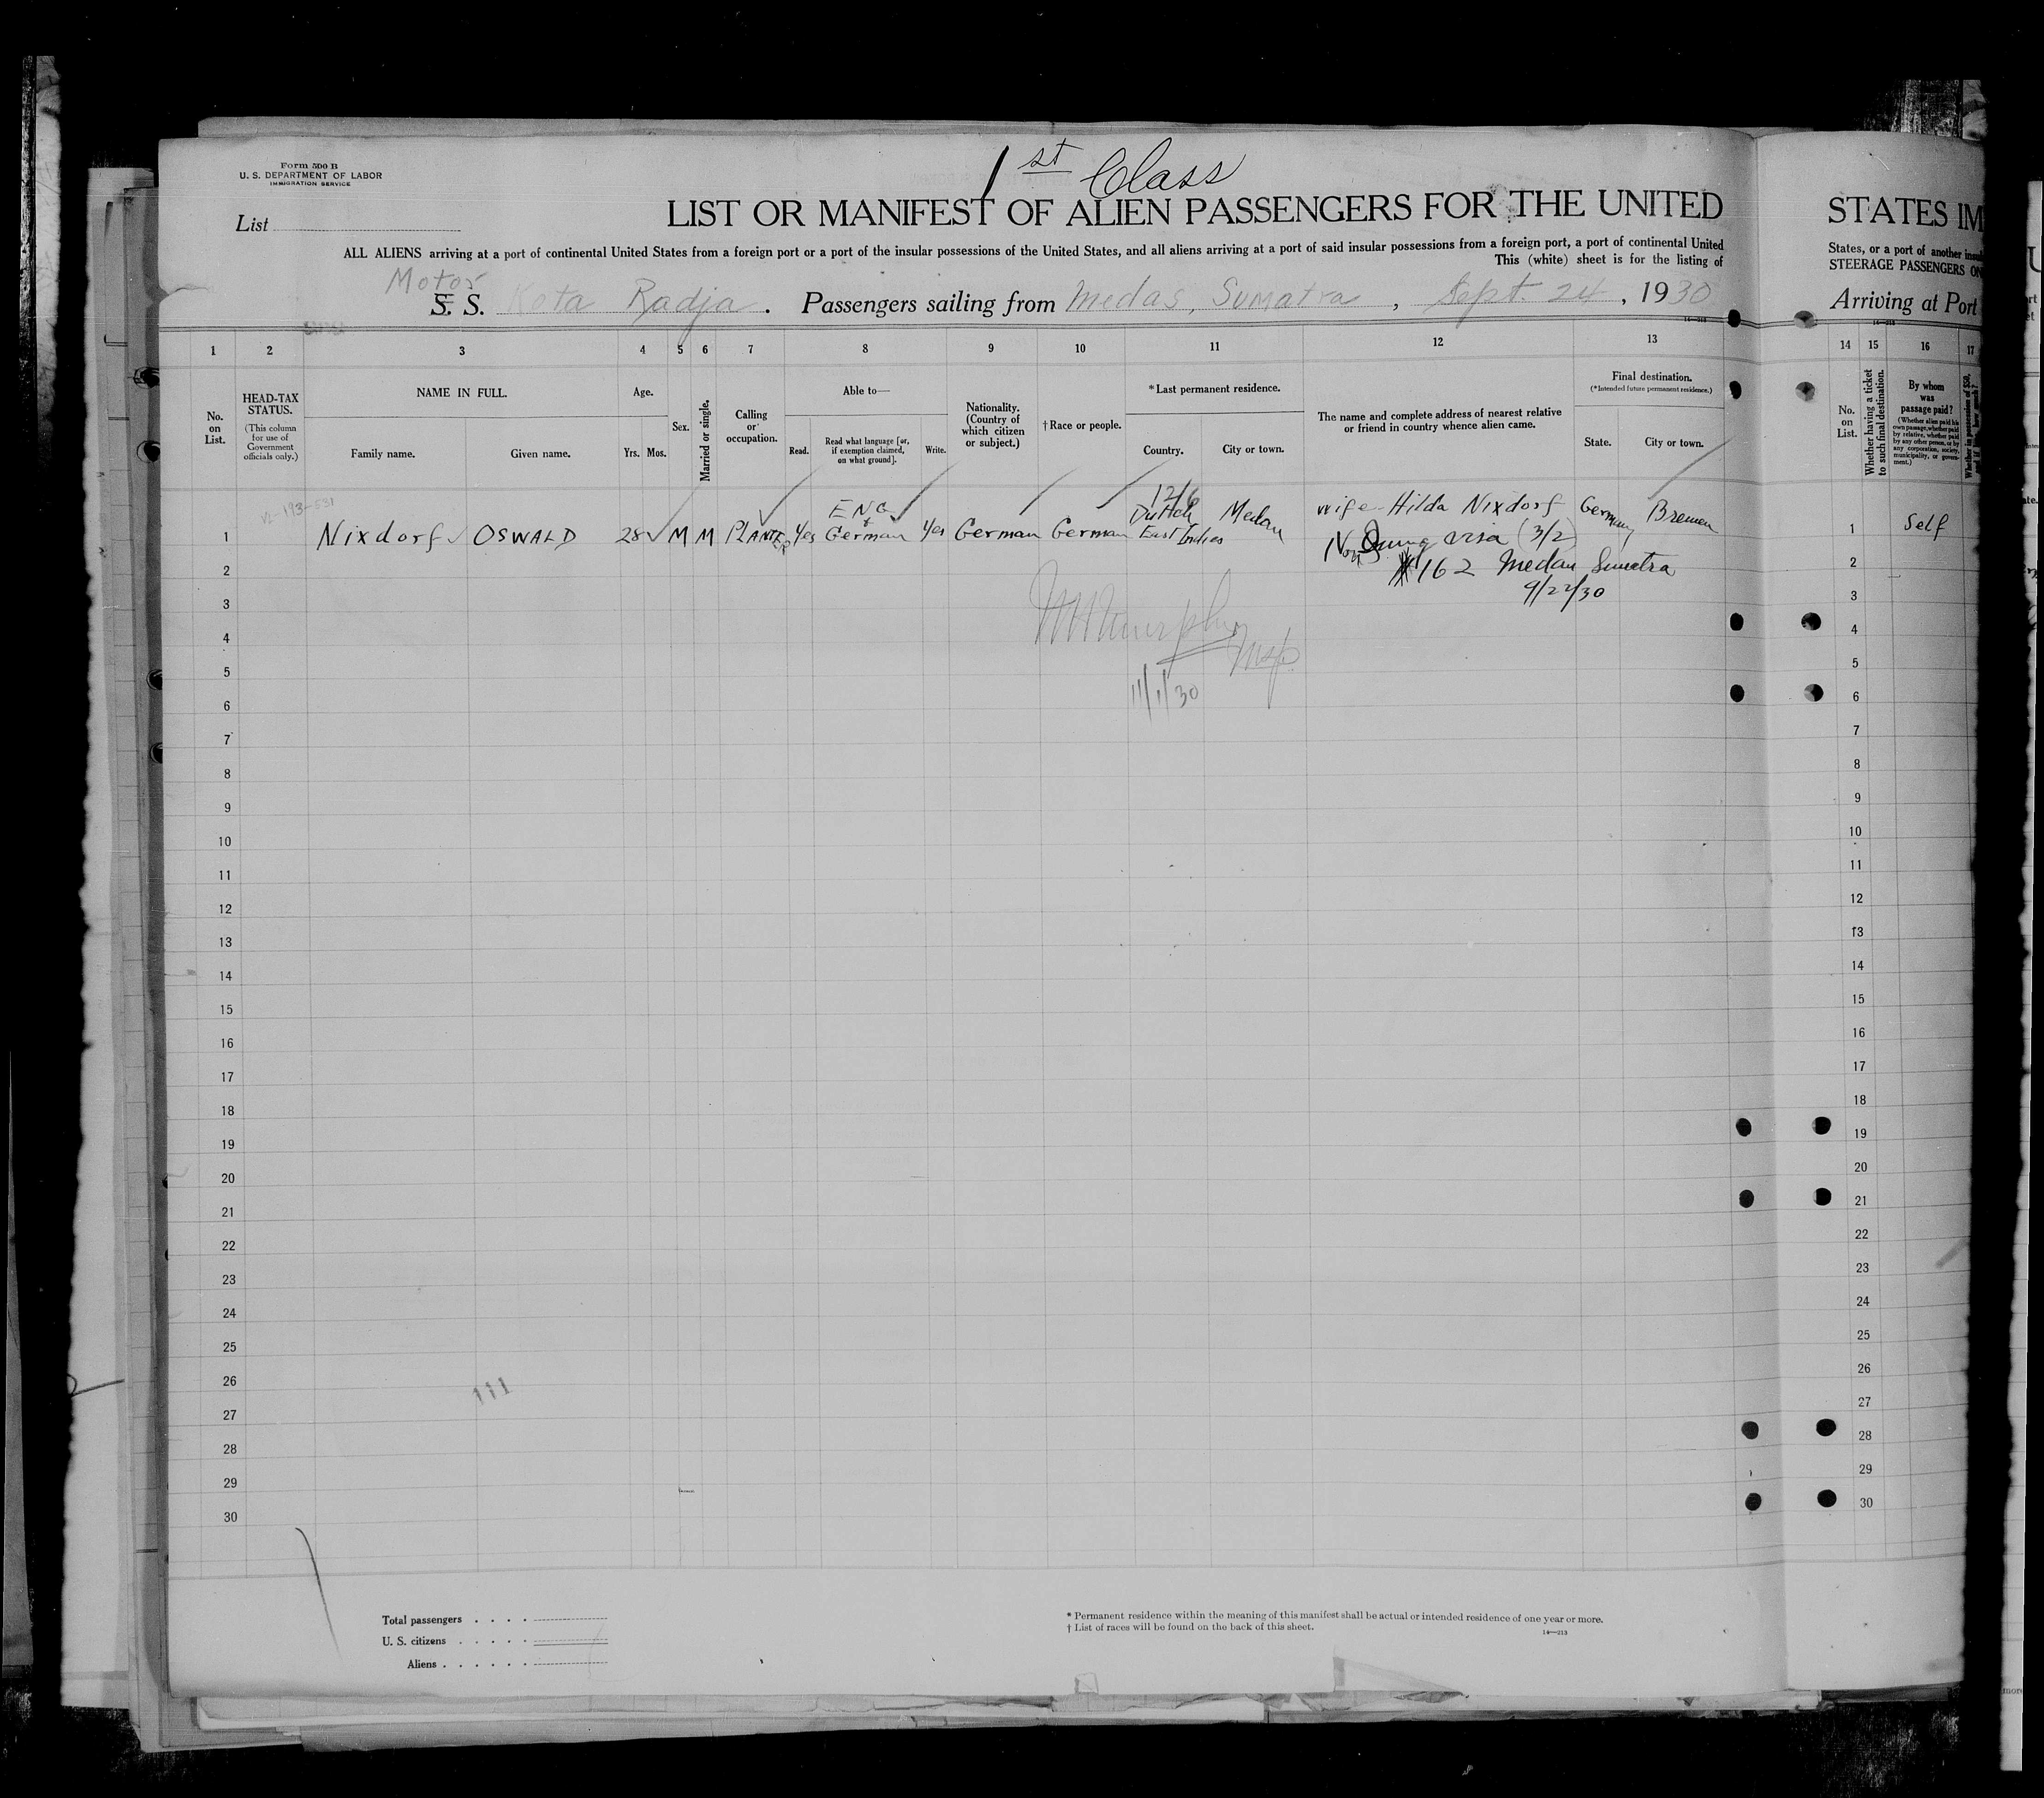 Form 500 B
U. S. DEPARTMENT OF LABOR
IMMIGRATION SERVICE
1st Class
List
LIST OR MANIFEST OF ALIEN PASSENGERS FOR THE UNITED
ALL ALIENS arriving at a port of continental United States from a foreign port or a port of the insular possessions of the United States, and all aliens arriving at a port of said insular possessions from a foreign port, a port of continental United
This (white) sheet is for the listing of
Motor
S. S. Kota Radja. Passengers sailing from Medas, Sumatra, Sept. 24, 1930
14—213
1 2 3 4 5 6 7 8 9 10 11 12 13
No. on List.
HEAD-TAX STATUS.
(This column for use of Government officials only.)
NAME IN FULL.
Family name. Given name.
Age.
Yrs. Mos.
Sex.
Married or single.
Calling or occupation.
Able to—
Read. Read what language [or, if exemption claimed, on what ground]. Write.
Nationality. (Country of which citizen or subject.)
† Race or people.
* Last permanent residence.
Country. City or town.
The name and complete address of nearest relative or friend in country whence alien came.
Final destination.
(* Intended future permanent residence.)
State. City or town.
1 Nixdorf OSWALD 28 M M PLANTER Yes ENG & German Yes German German 12/6 Dutch East Indies Medan wife - Hilda Nixdorf Germany Bremen
visa (3/2)
#162 Medan Sumatra
9/22/30
Murphy
Insp.
11/1/30
2
3
4
5
6
7
8
9
10
11
12
13
14
15
16
17
18
19
20
21
22
23
24
25
26
27
28
29
30
111
Total passengers
U. S. citizens
Aliens
* Permanent residence within the meaning of this manifest shall be actual or intended residence of one year or more.
† List of races will be found on the back of this sheet.
14—213
STATES IM
States, or a port of another insul
STEERAGE PASSENGERS ON
Arriving at Port
14 15 16 17
No. on List.
Whether having a ticket to such final destination.
By whom was passage paid?
(Whether alien paid his own passage, whether paid by relative, whether paid by any other person, or by any corporation, society, municipality, or government.)
Whether in possession of $50,
1 Self
2
3
4
5
6
7
8
9
10
11
12
13
14
15
16
17
18
19
20
21
22
23
24
25
26
27
28
29
30